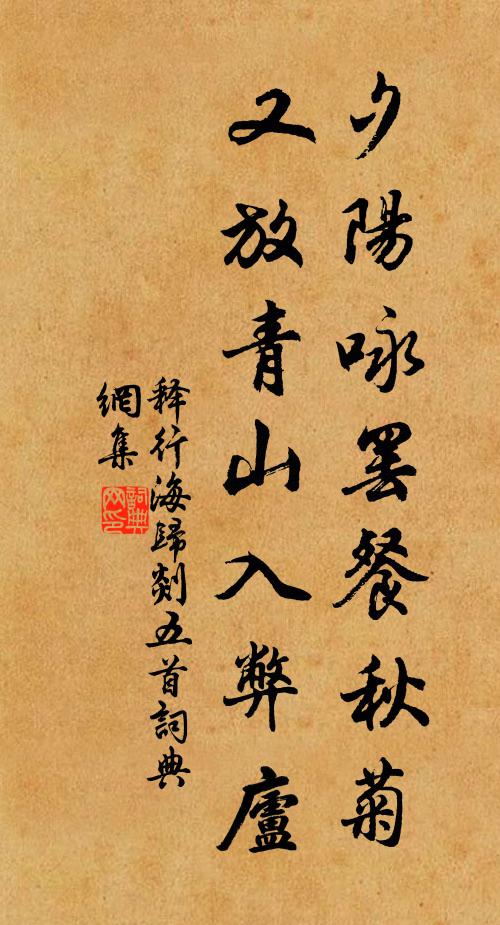 夕陽咏罢餐秋菊
又放青山入弊廬
释行海歸剡五首詞典
網集
詞典
网印